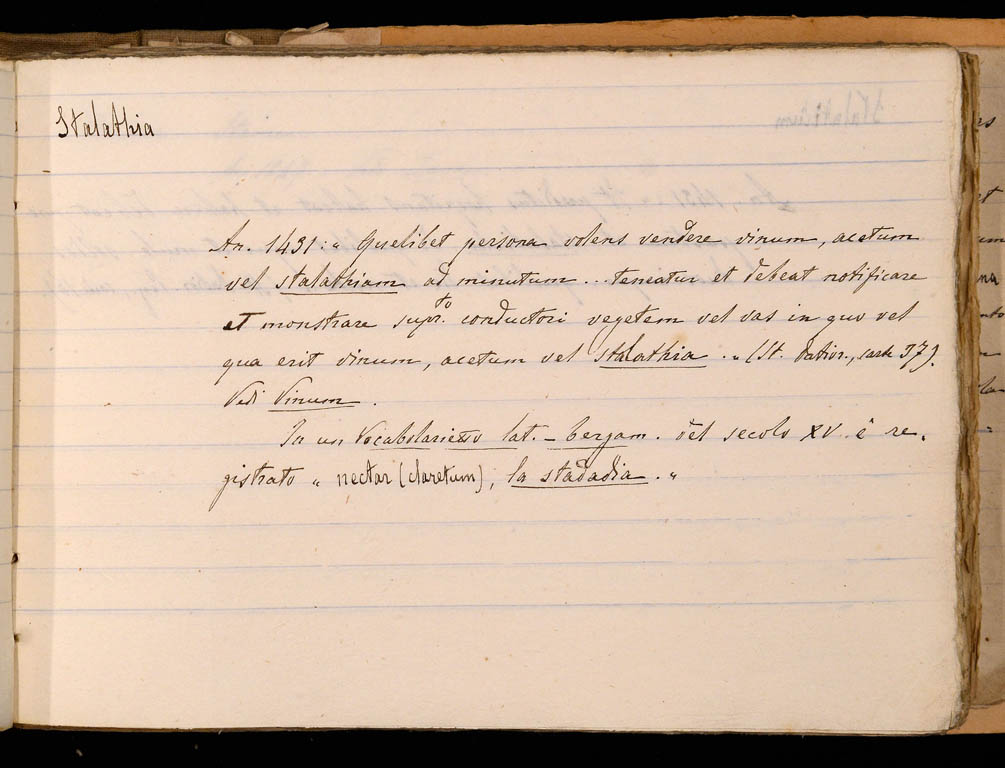 Stalathia
An. 1431: " Quelibet persona volens vendere vinum, acetum
vel stalathiam ad minutum... teneatur et debeat notificare
et monstrare supr.to conductori vegetem vel vas in quo vel
qua erit vinum, acetum vel stalathia . " (St. datior., carte 37).
Vedi Vinum .
In un Vocabolarietto lat. - bergam. del secolo XV. è re-
gistrato " nectar (claretum), la stadadia . "